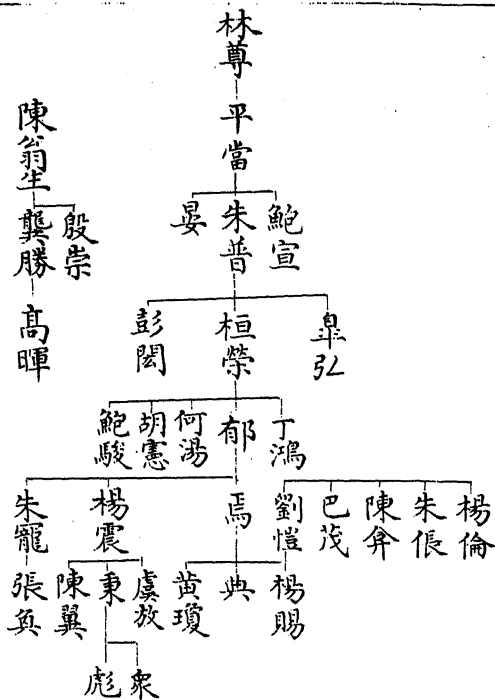 林尊
平當
鮑宣
朱普
晏
皐弘
桓榮
彭閎
丁鴻
郁
何湯
胡憲
鮑駿
楊倫
朱倀
陳弇
巴茂
劉愷
焉
楊震
朱寵
楊賜
典
黄瓊
虞放
秉
陳翼
張奐
衆
彪
陳翁生
殷崇
龔勝
髙暉